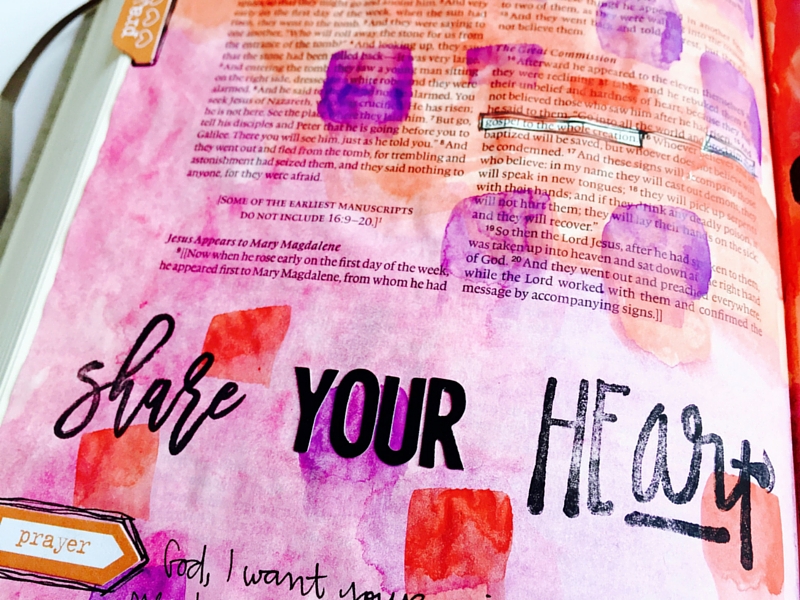 pray
the first day of the week, when the sun had
risen, they went to the tomb. And they were saying to
"Who will roll away the stone for us from
the entrance of the tomb?" And looking up, they
that the stone had been rolled back—it was very large.
And entering the tomb, they saw a young man sitting
on the right side, dressed white robe and they were
alarmed. And he said not be alarmed. You
seek Jesus of Nazareth, crucified. He has risen;
he is not here. See the place they laid him. But go,
tell his disciples and Peter that he is going before you to
Galilee. There you will see him, just as he told you." 8 And
they went out and fled from the tomb, for trembling and
astonishment had seized them, and they said nothing to
anyone, for they were afraid.
[SOME OF THE EARLIEST MANUSCRIPTS
DO NOT INCLUDE 16:9–20.]
Jesus Appears to Mary Magdalene
9 [[Now when he rose early on the first day of the week,
he appeared first to Mary Magdalene, from whom he had
to two of them,
And they went and told
not believe them.
The Great Commission
14 Afterward he appeared to the eleven themselves
they were reclining at table, and he rebuked
their unbelief and hardness of heart, because they
not believed those who saw him after he had
he said to them, "Go into all the world
gospel to the whole creation. 16 Whoever
baptized will be saved, but whoever does not believe will
be condemned. 17 And these signs will accompany those
who believe: in my name they will cast out demons; they
will speak in new tongues; 18 they will pick up serpents
with their hands; and if they drink any deadly poison, it
will not hurt them; they will lay their hands on the sick,
and they will recover."
19 So then the Lord Jesus, after he had spoken to them,
was taken up into heaven and sat down at the right hand
of God. 20 And they went out and preached everywhere,
while the Lord worked with them and confirmed the
message by accompanying signs.]]
share YOUR HEart
prayer
God, I want your